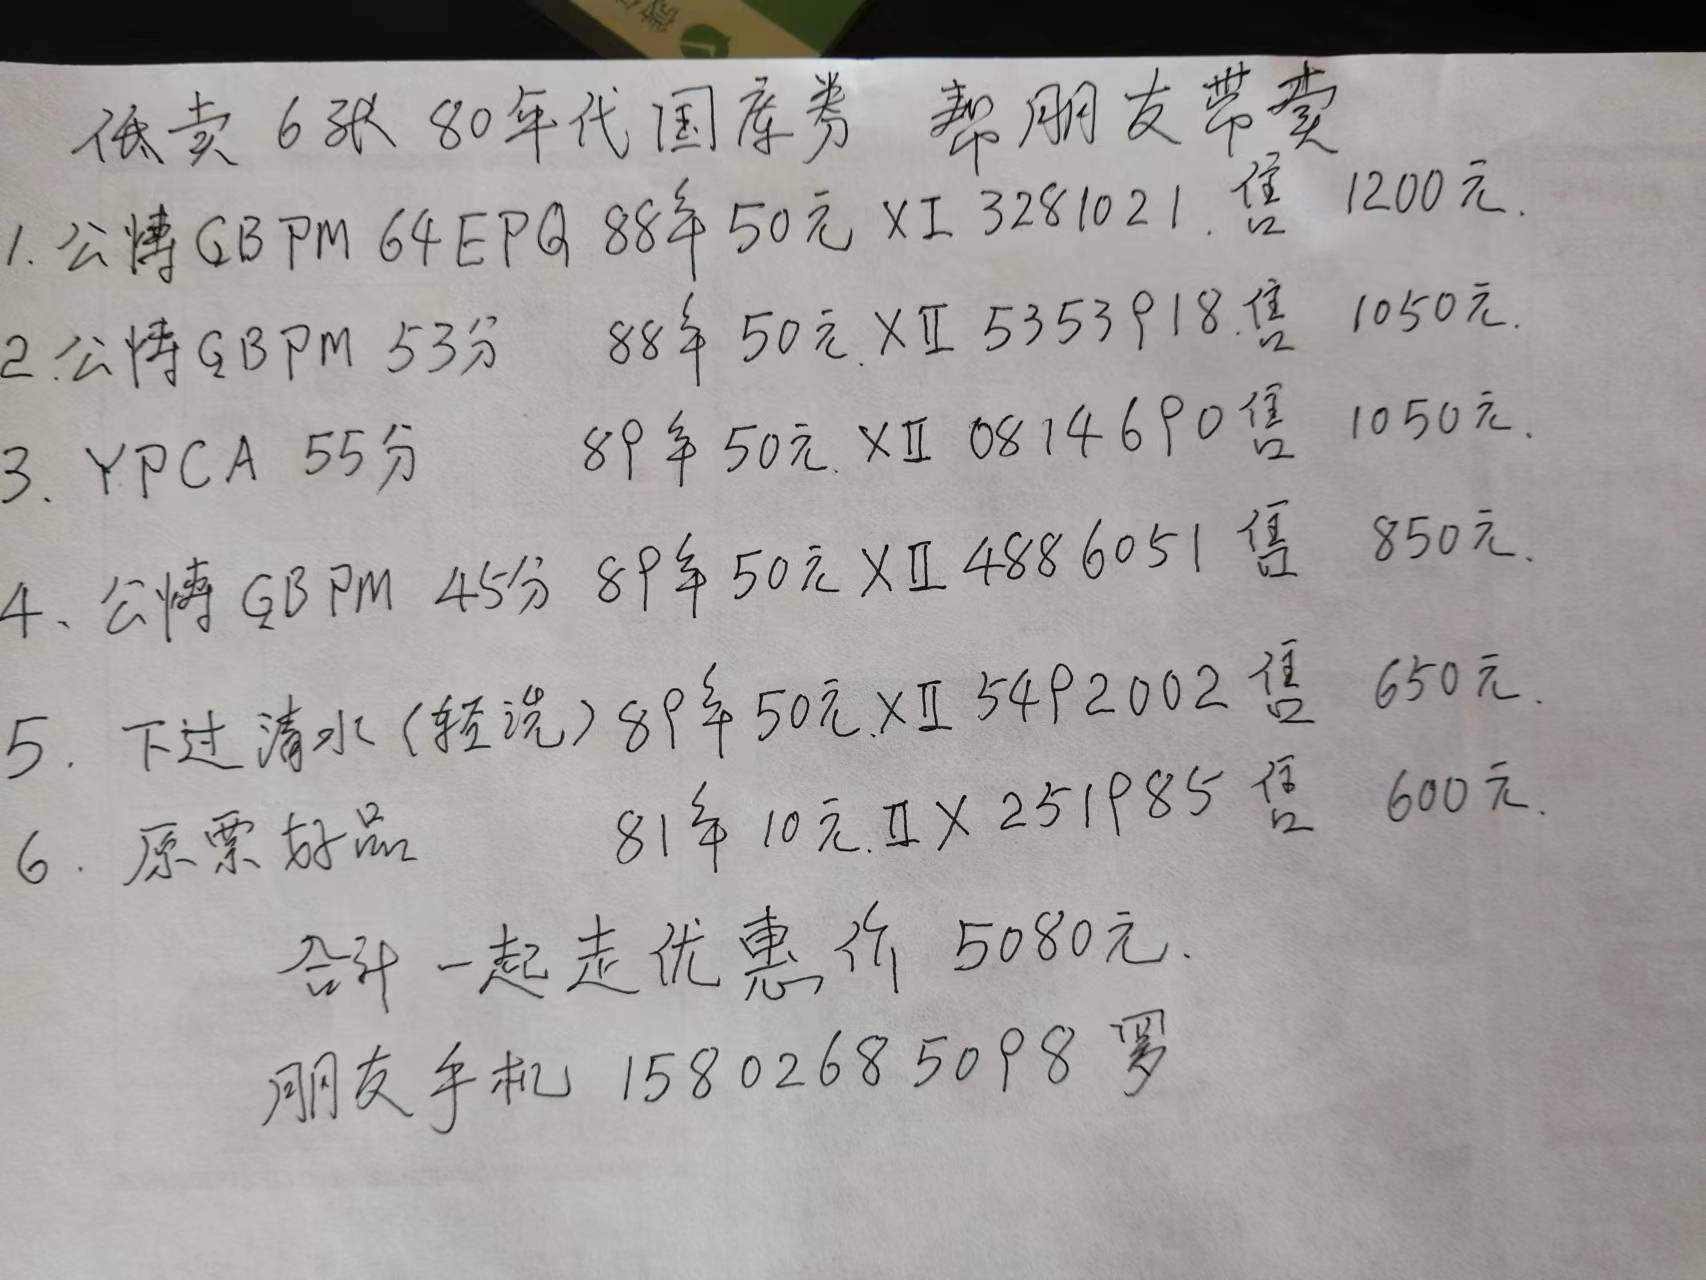 低卖 6张 80年代国库券 帮朋友带卖
1. 公博GBPM 64EPQ 88年50元 XI 3281021. 售 1200元.
2. 公博GBPM 53分 88年50元. XII 5353918. 售 1050元.
3、YPCA 55分 89年50元. XII 0814690 售 1050元.
4、公博GBPM 45分 89年50元 XII 4886051 售 850元.
5. 下过清水(轻洗) 89年50元. XII 5492002 售 650元.
6. 原票好品 81年10元. II X 251985 售 600元.
合计一起走优惠价 5080元.
朋友手机 15802685098 罗